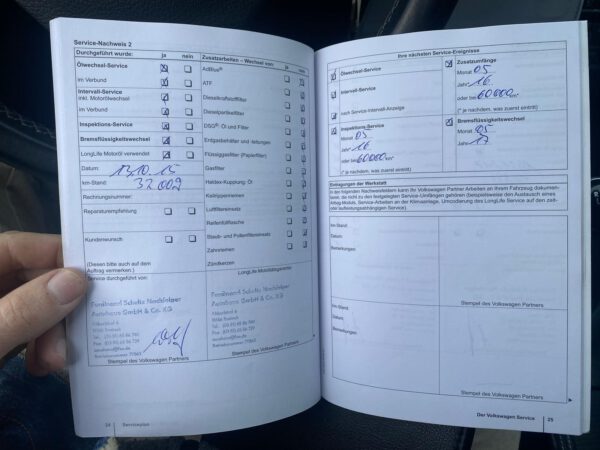 Service-Nachweis 2
Durchgeführt wurde: ja nein
Ölwechsel-Service
im Verbund
Intervall-Service
inkl. Motorölwechsel
im Verbund
Inspektions-Service
Bremsflüssigkeitswechsel
LongLife Motoröl verwendet
Datum: 13.10.15
km-Stand: 32.002
Rechnungsnummer:
Reparaturempfehlung
Kundenwunsch
(Diesen bitte auch auf dem
Auftrag vermerken.)
Service durchgeführt von:
Ferdinand Schultz Nachfolger
Autohaus GmbH & Co. KG
Stempel des Volkswagen Partners
24 Serviceplan
Zusatzarbeiten – Wechsel von: ja nein
AdBlue®
ATF
Dieselkraftstofffilter
Dieselpartikelfilter
DSG®: Öl und Filter
Erdgasbehälter und -leitungen
Flüssiggasfilter (Papierfilter)
Gasfilter
Haldex-Kupplung: Öl
Keilrippenriemen
Luftfiltereinsatz
Reifenfüllflasche
Staub- und Pollenfiltereinsatz
Zahnriemen
Zündkerzen
LongLife Mobilitätsgarantie
Ferdinand Schultz Nachfolger
Autohaus GmbH & Co. KG
Stempel des Volkswagen Partners
Ihre nächsten Service-Ereignisse
Ölwechsel-Service
Intervall-Service
nach Service-Intervall-Anzeige
Inspektions-Service
Monat 05
Jahr 16
oder bei 60000 km
(* je nachdem, was zuerst eintritt)
Zusatzumfänge
Monat 05
Jahr 16
oder bei 60000 km*
(* je nachdem, was zuerst eintritt)
Bremsflüssigkeitswechsel
Monat 05
Jahr 17
Eintragungen der Werkstatt
In den folgenden Nachweisfeldern kann Ihr Volkswagen Partner Arbeiten an Ihrem Fahrzeug dokumen-
tieren, die nicht zu den festgelegten Service-Umfängen gehören (beispielsweise den Austausch eines
Airbag Moduls, Service-Arbeiten an der Klimaanlage, Umcodierung des LongLife Service auf den zeit-
oder laufleistungsabhängigen Service).
km-Stand:
Datum:
Bemerkungen:
Stempel des Volkswagen Partners
km-Stand:
Datum:
Bemerkungen:
Stempel des Volkswagen Partners
Der Volkswagen Service 25